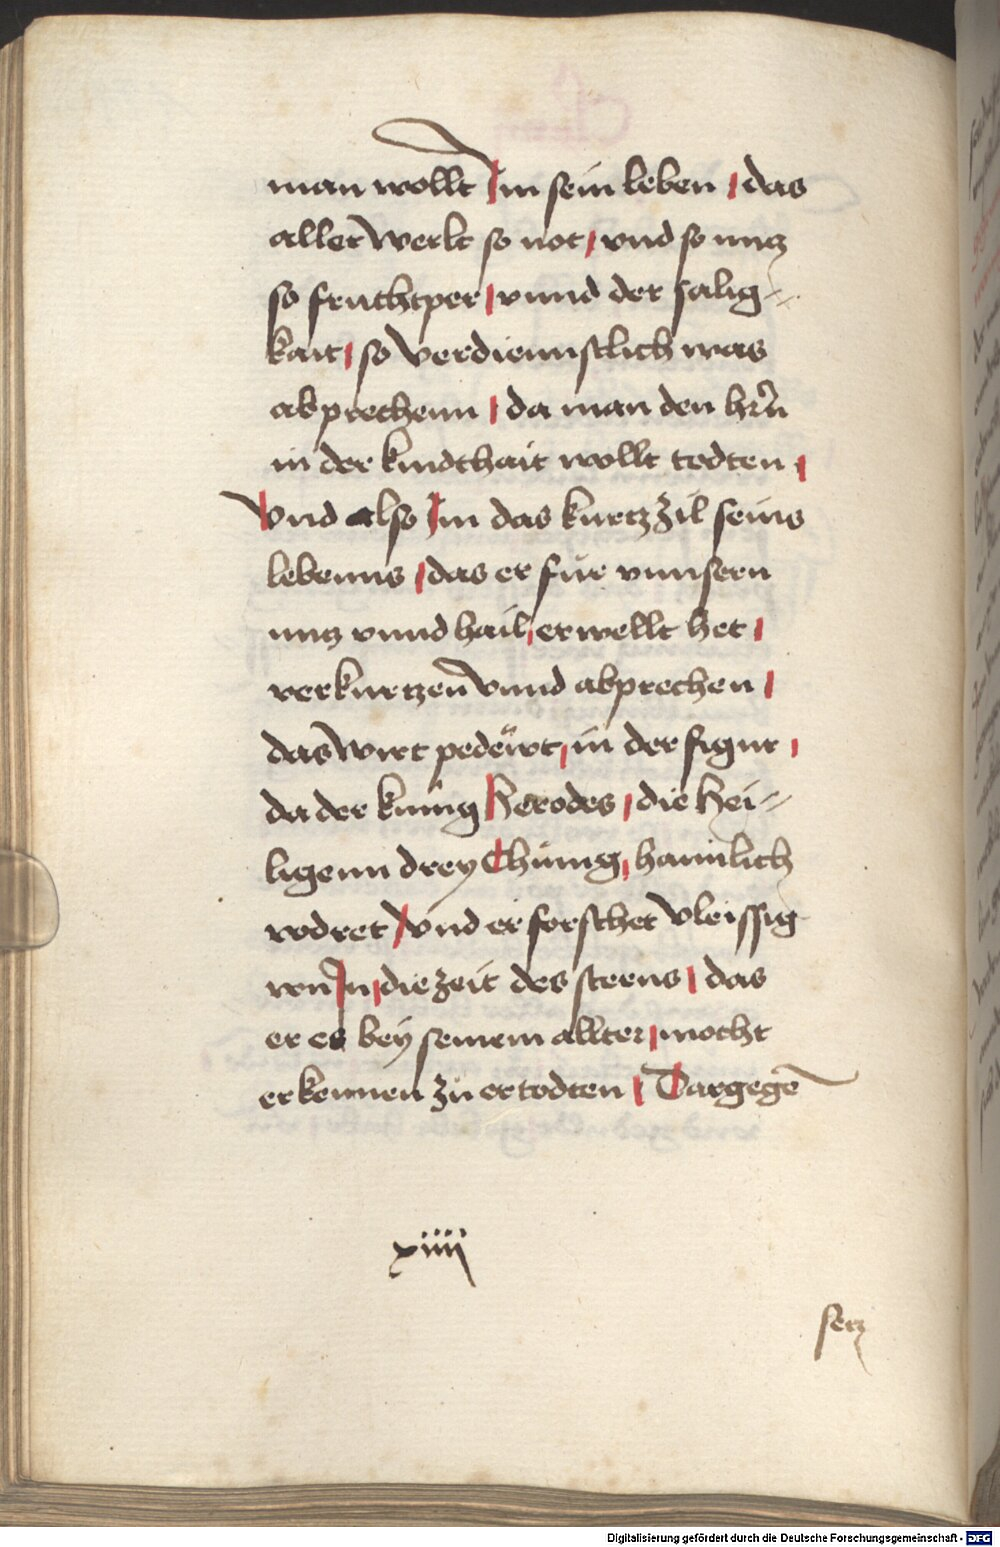 man wollt Im sein leben / das
aller werlt so not / vnd so nutz
so fruchtper / vnnd der salig=
kait / so verdiennstlich was
abprechenn / da man den hr̃n
in der kindthait wollt todten /
Vnd also Im das kurtz zil seins
lebenns / das er fur vnnsern
nutz vnnd hail / erwellt het /
verkurtzen vnnd abprechen /
das wirt pedewt / in der figur /
da der kunig Herodes / die Hei=
ligenn drey Chunig / haimlich
vodret / vnd erforschet vleissig
von In / die zeit des sterns / das
er es bey seinem allter / mocht
erkennen zu ertodten / Dargegē
xiiii
setz
Digitalisierung gefördert durch die Deutsche Forschungsgemeinschaft - DFG